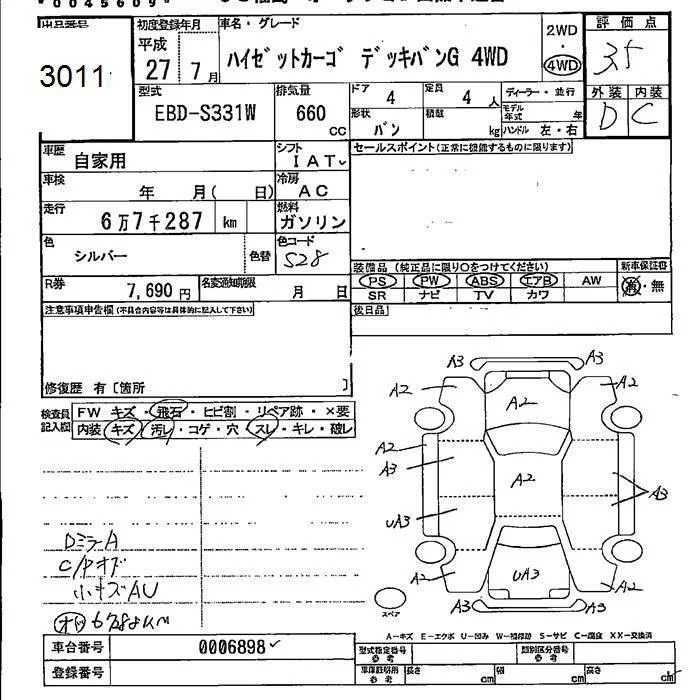 0045609
出品番号
3011
初度登録年月
平成
27 7月
車名・グレード
ハイゼットカーゴ デッキバンG 4WD
2WD
・
4WD
評価点
3.5
外装 内装
D C
型式
EBD-S331W
排気量
660
CC
ドア
4
定員
4 人
ディーラー・並行
形状
バン
積載
kg
モデル年式 年
ハンドル 左・右
車歴
自家用
シフト
IAT
セールスポイント(正常に機能するものに限ります)
車検
年 月( 日)
冷房
AC
走行
6万7千287 km
燃料
ガソリン
色
シルバー
色替
色コード
S28
R券
7,690円
名変通知期限
月 日
装備品(純正品に限り○をつけてください)
新車保証書
PS PW ABS エアB AW
有・無
SR ナビ TV カワ
後日品
注意事項申告欄(不具合内容等は具体的に記入して下さい)
修復歴 有〔箇所 〕
検査員記入欄
FW キズ・飛石・ヒビ割・リペア跡・×要
内装 キズ・汚レ・コゲ・穴・スレ・キレ・破レ
A3 A3
A2 A2
A2
A2
A3
A2
A3
UA3
A2 UA3 A2
A3 A3
スペア
DミラーA
C/Pオド
小キズAU
オド 67288KM
A−キズ E−エクボ U−凹み W−補修跡 S−サビ C−腐食 XX−交換済
車台番号
0006898
登録番号
型式指定番号
参考
類別区分番号
参考
車庫証明用
参考
長さ cm 幅 cm 高さ cm